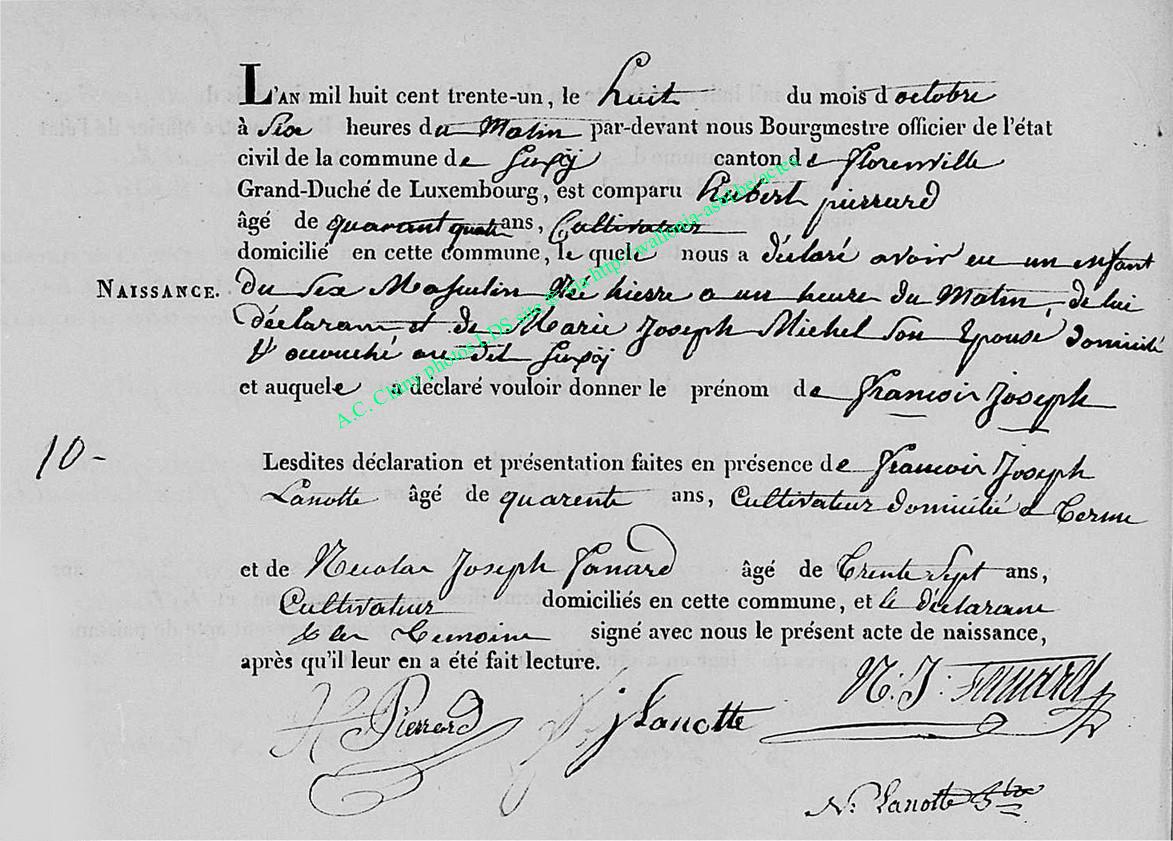 L'AN mil huit cent trente-un, le huit du mois d octobre
à Six heures du Matin par-devant nous Bourgmestre officier de l'état
civil de la commune de canton de florenville
Grand-Duché de Luxembourg, est comparu hubert pierrard
âgé de quarant quatr ans, Cultivateur
domicilié en cette commune, le quele nous a déclaré avoir eu un enfant
NAISSANCE. du Sex Masculin Né hierre a un heure du Matin, de lui
déclarant et de Marie Joseph Michel Son Epouse domicilié
au dit
et auquele a déclaré vouloir donner le prénom de francoir Joseph
10-
Lesdites déclaration et présentation faites en présence de francoir Joseph
Lanotte âgé de quarente ans, Cultivateur domicilié a
et de Nicolas Joseph fanard âgé de trente Sept ans,
Cultivateur domiciliés en cette commune, et le déclarant
& les temoins signé avec nous le présent acte de naissance,
après qu'il leur en a été fait lecture.
H Pierrard fj Lanotte N: J: fanard
N: Lanotte
A.C. Chiny photos LDS site © via http://wallonia-asbl.be/actes